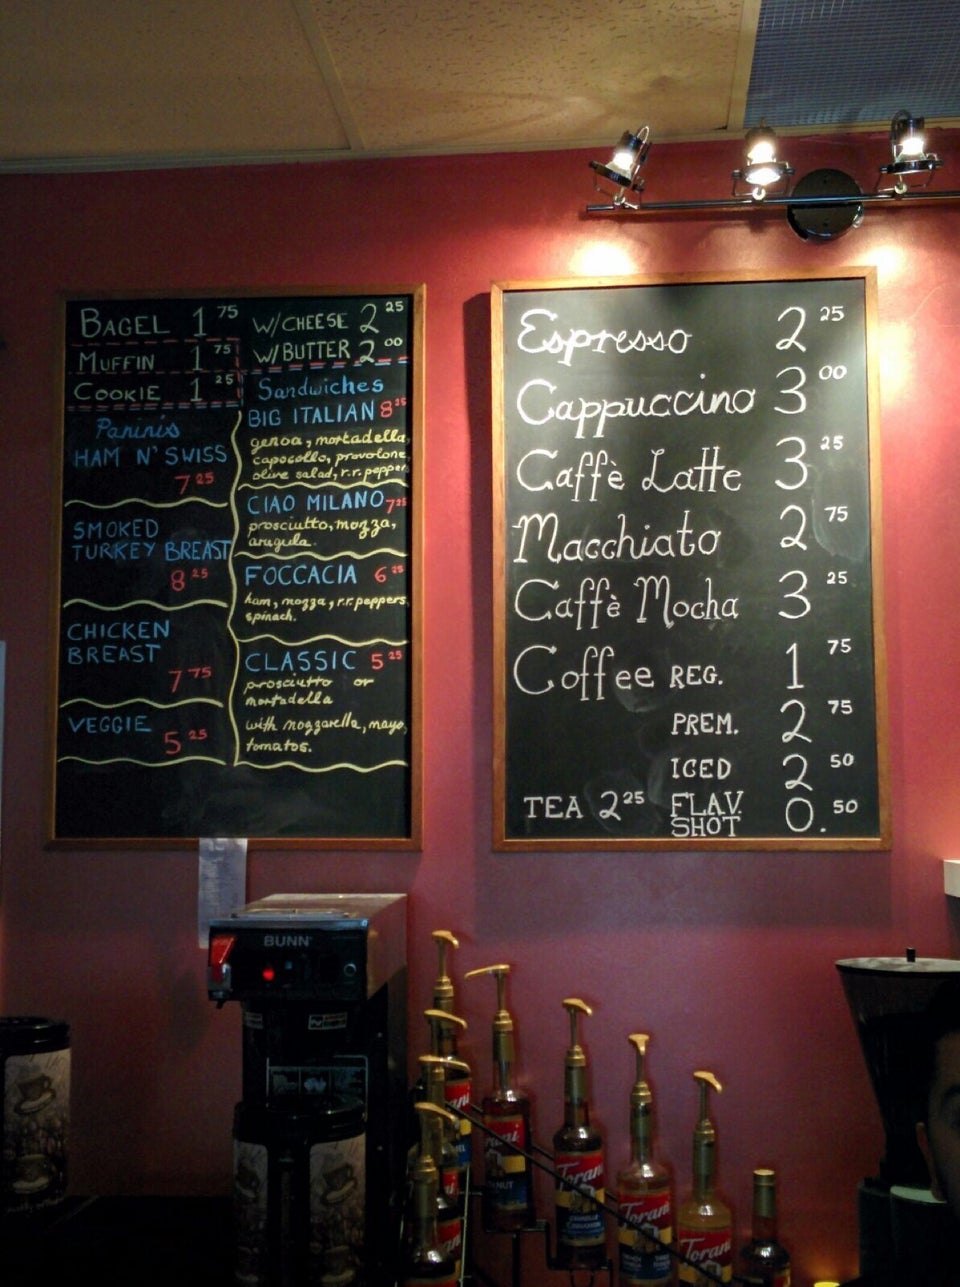 BAGEL 1 75
MUFFIN 1 75
COOKIE 1 25
W/CHEESE 2 25
W/BUTTER 2 00
Paninis
HAM N' SWISS
7 25
SMOKED
TURKEY BREAST
8 25
CHICKEN
BREAST
7 75
VEGGIE
5 25
Sandwiches
BIG ITALIAN 8 25
genoa, mortadella,
capocollo, provolone,
olive salad, r.r. peppers
CIAO MILANO 7 25
prosciutto, mozza,
arugula.
FOCCACIA 6 25
ham, mozza, r.r. peppers,
spinach.
CLASSIC 5 25
prosciutto or
mortadella
with mozzarella, mayo,
tomatos.
Espresso 2 25
Cappuccino 3 00
Caffè Latte 3 25
Macchiato 2 75
Caffè Mocha 3 25
Coffee REG. 1 75
PREM. 2 75
ICED 2 50
TEA 2 25 FLAV. SHOT 0. 50
BUNN
Torani
Torani
Torani
Torani